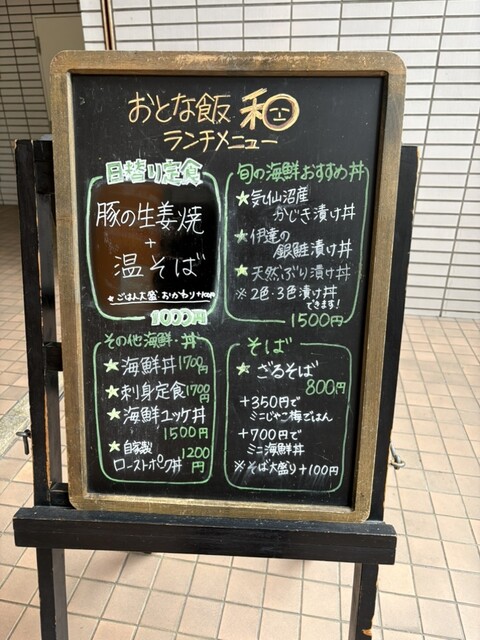 おとな飯 和
ランチメニュー
日替り定食
豚の生姜焼
+
温そば
★ごはん大盛・おかわり+100円
1000円
旬の海鮮おすすめ丼
★気仙沼産
かじき漬け丼
★伊達の
銀鮭漬け丼
★天然ぶり漬け丼
※2色・3色漬け丼
できます!
1500円
その他海鮮・丼
★海鮮丼1700円
★刺身定食1700円
★海鮮ユッケ丼
1500円
★自家製
ローストポーク丼
1200円
そば
★ざるそば
800円
+350円で
ミニじゃこ梅ごはん
+700円で
ミニ海鮮丼
※そば大盛り+100円